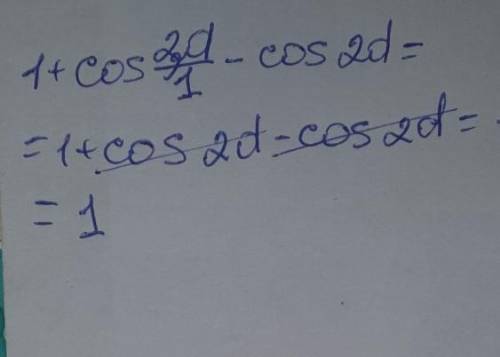 1+cos 2d/1 - cos 2d =
= 1+cos 2d - cos 2d =
= 1